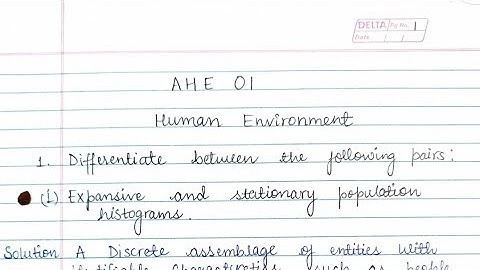 DELTA Pg No. 1
Date / /
AHE 01
Human Environment
1. Differentiate between the following pairs:
(i) Expansive and stationary population
histograms.
Solution A Discrete assemblage of entities with
identifiable characteristics such as people